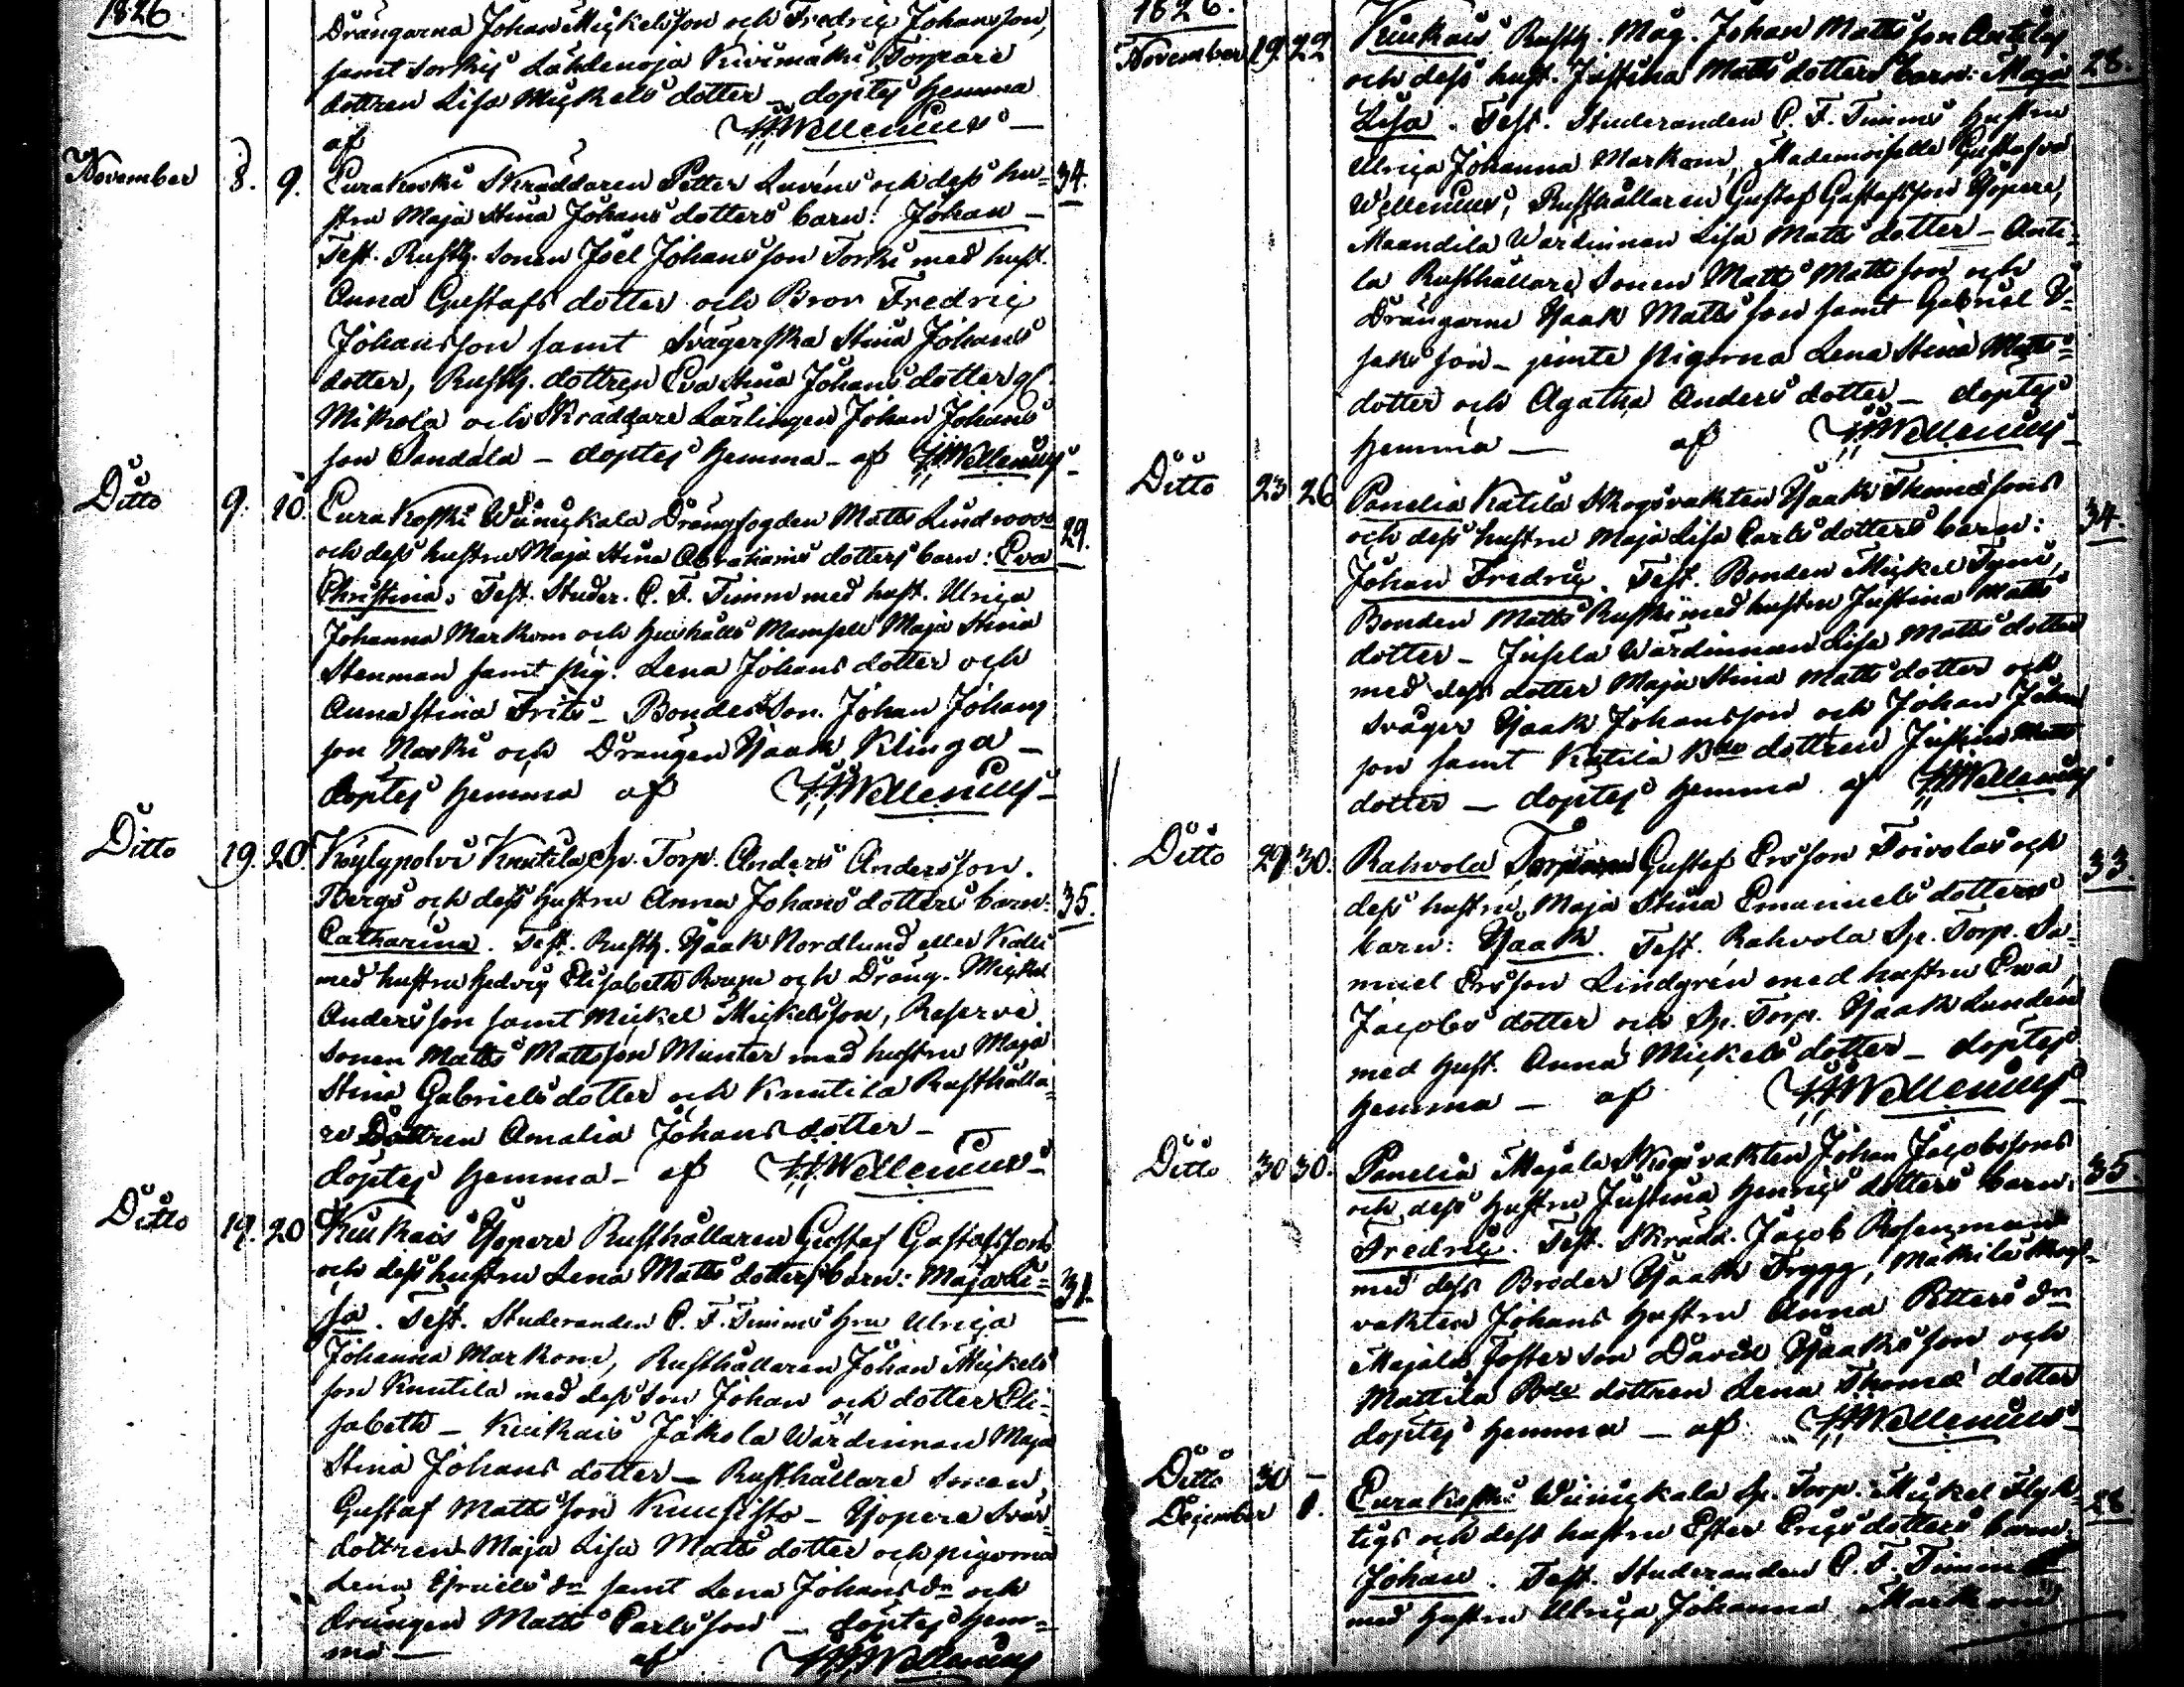 1826.
Drängarna Johan Mickelsson och Fredric Johansson,
samt Sorkis Lähdenoja Kivimäki Torpare
dottren Lisa Mickels dotter – döptes hemma
af HWellenius –
November 8. 9. Eurakoski Skräddaren Petter Luréns och dess hu= 34.
stru Maja Stina Johans dotters barn: Johan –
Test. Rusth. sonen Joel Johansson Sorki med hust.
Anna Gustafs dotter och Bror Fredric
Johansson samt Svägerska Stina Johans
dotter, Rusth. dottren Eva Stina Johans dotter
Mikola och Skräddare Lärlingen Johan Johans
son Sandala – döptes hemma – af HWellenius –
Ditto 9. 10. Eurakoski Wänickala Drängfogden Matts Lindroos 29.
och dess hustru Maja Stina Abrahams dotters barn: Eva
Christina. Test. Studer. C. F. Timm med hust. Ulrica
Johanna Markom och hushålls Mamsell Maja Stina
Stenman samt pig. Lena Johans dotter och
Anna Stina Frits – Bonde Son. Johan Johans
son Naski och Drängen Isaak Klinga –
döptes hemma af HWellenius –
Ditto 19. 20. Köylypolvi Knutila Sp. Torp. Anders Andersson
Bergs och dess hustru Anna Johans dotters barn: 35.
Catharina. Test. Rusth. Isaak Nordlund eller Kalli
med hustru Hedvig Elisabeth Roupe och Dräng. Mickel
Andersson samt Mickel Mickelsson, Reserve
sonen Matts Mattsson Munter med hustru Maja
Stina Gabriels dotter och Knutila Rusthålla=
re Dottren Amalia Johans dotter –
döptes hemma – af HWellenius –
Ditto 19. 20 Kiukais Yopere Rusthållaren Gustaf Gustafssons
och dess hustru Lena Matts dotters barn: Maja Li= 31.
sa. Test. Studeranden C. F. Timms hru Ulrica
Johanna Markom, Rusthållaren Johan Mickels
son Knutila med dess Son Johan och dotter Eli=
sabeth – Kiukais Jakola Wärdinnan Maja
Stina Johans dotter – Rusthållare Sonen
Gustaf Mattsson Knusisto – Yopere Svär=
dottren Maja Lisa Matts dotter och pigorna
Lena Israels dr samt Lena Johans dr och
drängen Matts Carlsson – döptes hem=
ma – af HWellenius
1826.
November 19. 22 Kiukais Rusth. Måg. Johan Mattsson Antilas
och dess hust. Justina Matts dotters barn: Maja 28.
Lisa. Test. Studeranden C. F. Timms Hustru
Ulrica Johanna Markom, Mademoiselle Gustafva
Wellenius, Rusthållaren Gustaf Gustafsson Yopere,
Maandila Wärdinnan Lisa Matts dotter – Anti=
la Rusthållare Sonen Matts Mattsson och
Drängarne Isaak Mattsson samt Gabriel I=
saksson – jemte pigorna Lena Stina Matts=
dotter och Agatha Anders dotter – döptes
hemma – af HWellenius –
Ditto 23 26 Panelia Katila Skogsvakten Isaak Thomæ sons
och dess hustru Maja Lisa Carls dotters barn: 34.
Johan Fredric. Test. Bonden Mickel Tyni,
Bonden Matts Ruski med hustru Justina Matts
dotter – Jusela Wärdinnan Lisa Matts dotter
med dess dotter Maja Stina Matts dotter och
Svåger Isaak Johansson och Johan Johans
son samt Katila Bde dottren Justina Matts
dotter – döptes hemma af HWellenius
Ditto 29 30. Rahvola Torparen Gustaf Ersson Toivolas och 33.
dess hustru Maja Stina Emanuels dotters
barn: Isaak. Test. Rahvola Sp. Torp. Sa=
muel Ersson Lindgrén med hustru Eva
Jacobs dotter och Sp. Torp. Isaak Lundén
med Hust. Anna Mickels dotter – döptes
hemma – af HWellenius –
Ditto 30 30. Panelia Majala Skogsvakten Johan Jacobssons 35.
och dess hustru Justina Henrics dotters barn:
Fredric. Test. Skrädd. Jacob Rosenman
med dess Broder Isaak Trygg, Mäkilä Skogs=
vakten Johans hustru Anna Petters dr
Majala foster son David Isaaksson och
Mattila Bde dottren Lena Thomæ dotter
döptes hemma – af HWellenius
Ditto 30 –
December 1. Eurakoski Wänickala Sp. Torp. Mickel Flyk= 28.
tigs och dess hustru Ester Erics dotters barn:
Johan. Test. Studeranden C. F. Timm
med Hustru Ulrica Johanna Markom